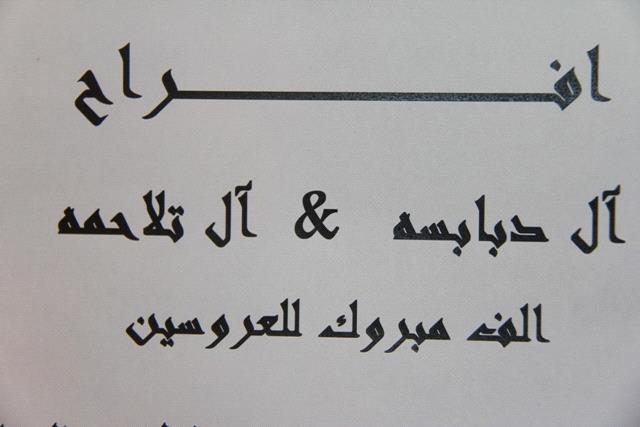 افـــــــراح
آل دبابسه & آل تلاحمه
الف مبروك للعروسين